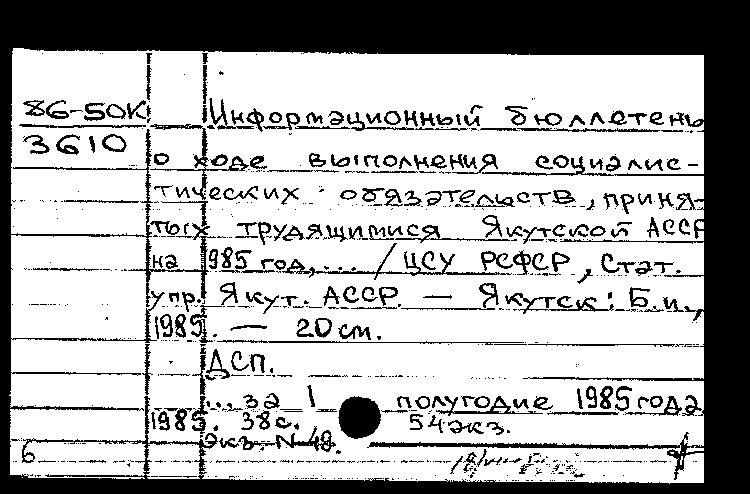 86-50К Информационный бюллетень
3610
о ходе выполнения социалис-
тических обязательств, приня-
тых трудящимися Якутской АССР
на 1985 год,... / ЦСУ РСФСР, Стат.
упр. Якут. АССР. — Якутск: Б.и.,
1985. — 20 см.
ДСП.
... за 1 полугодие 1985 года
1985. 38 с. 54 экз.
Экз. N 48.
6